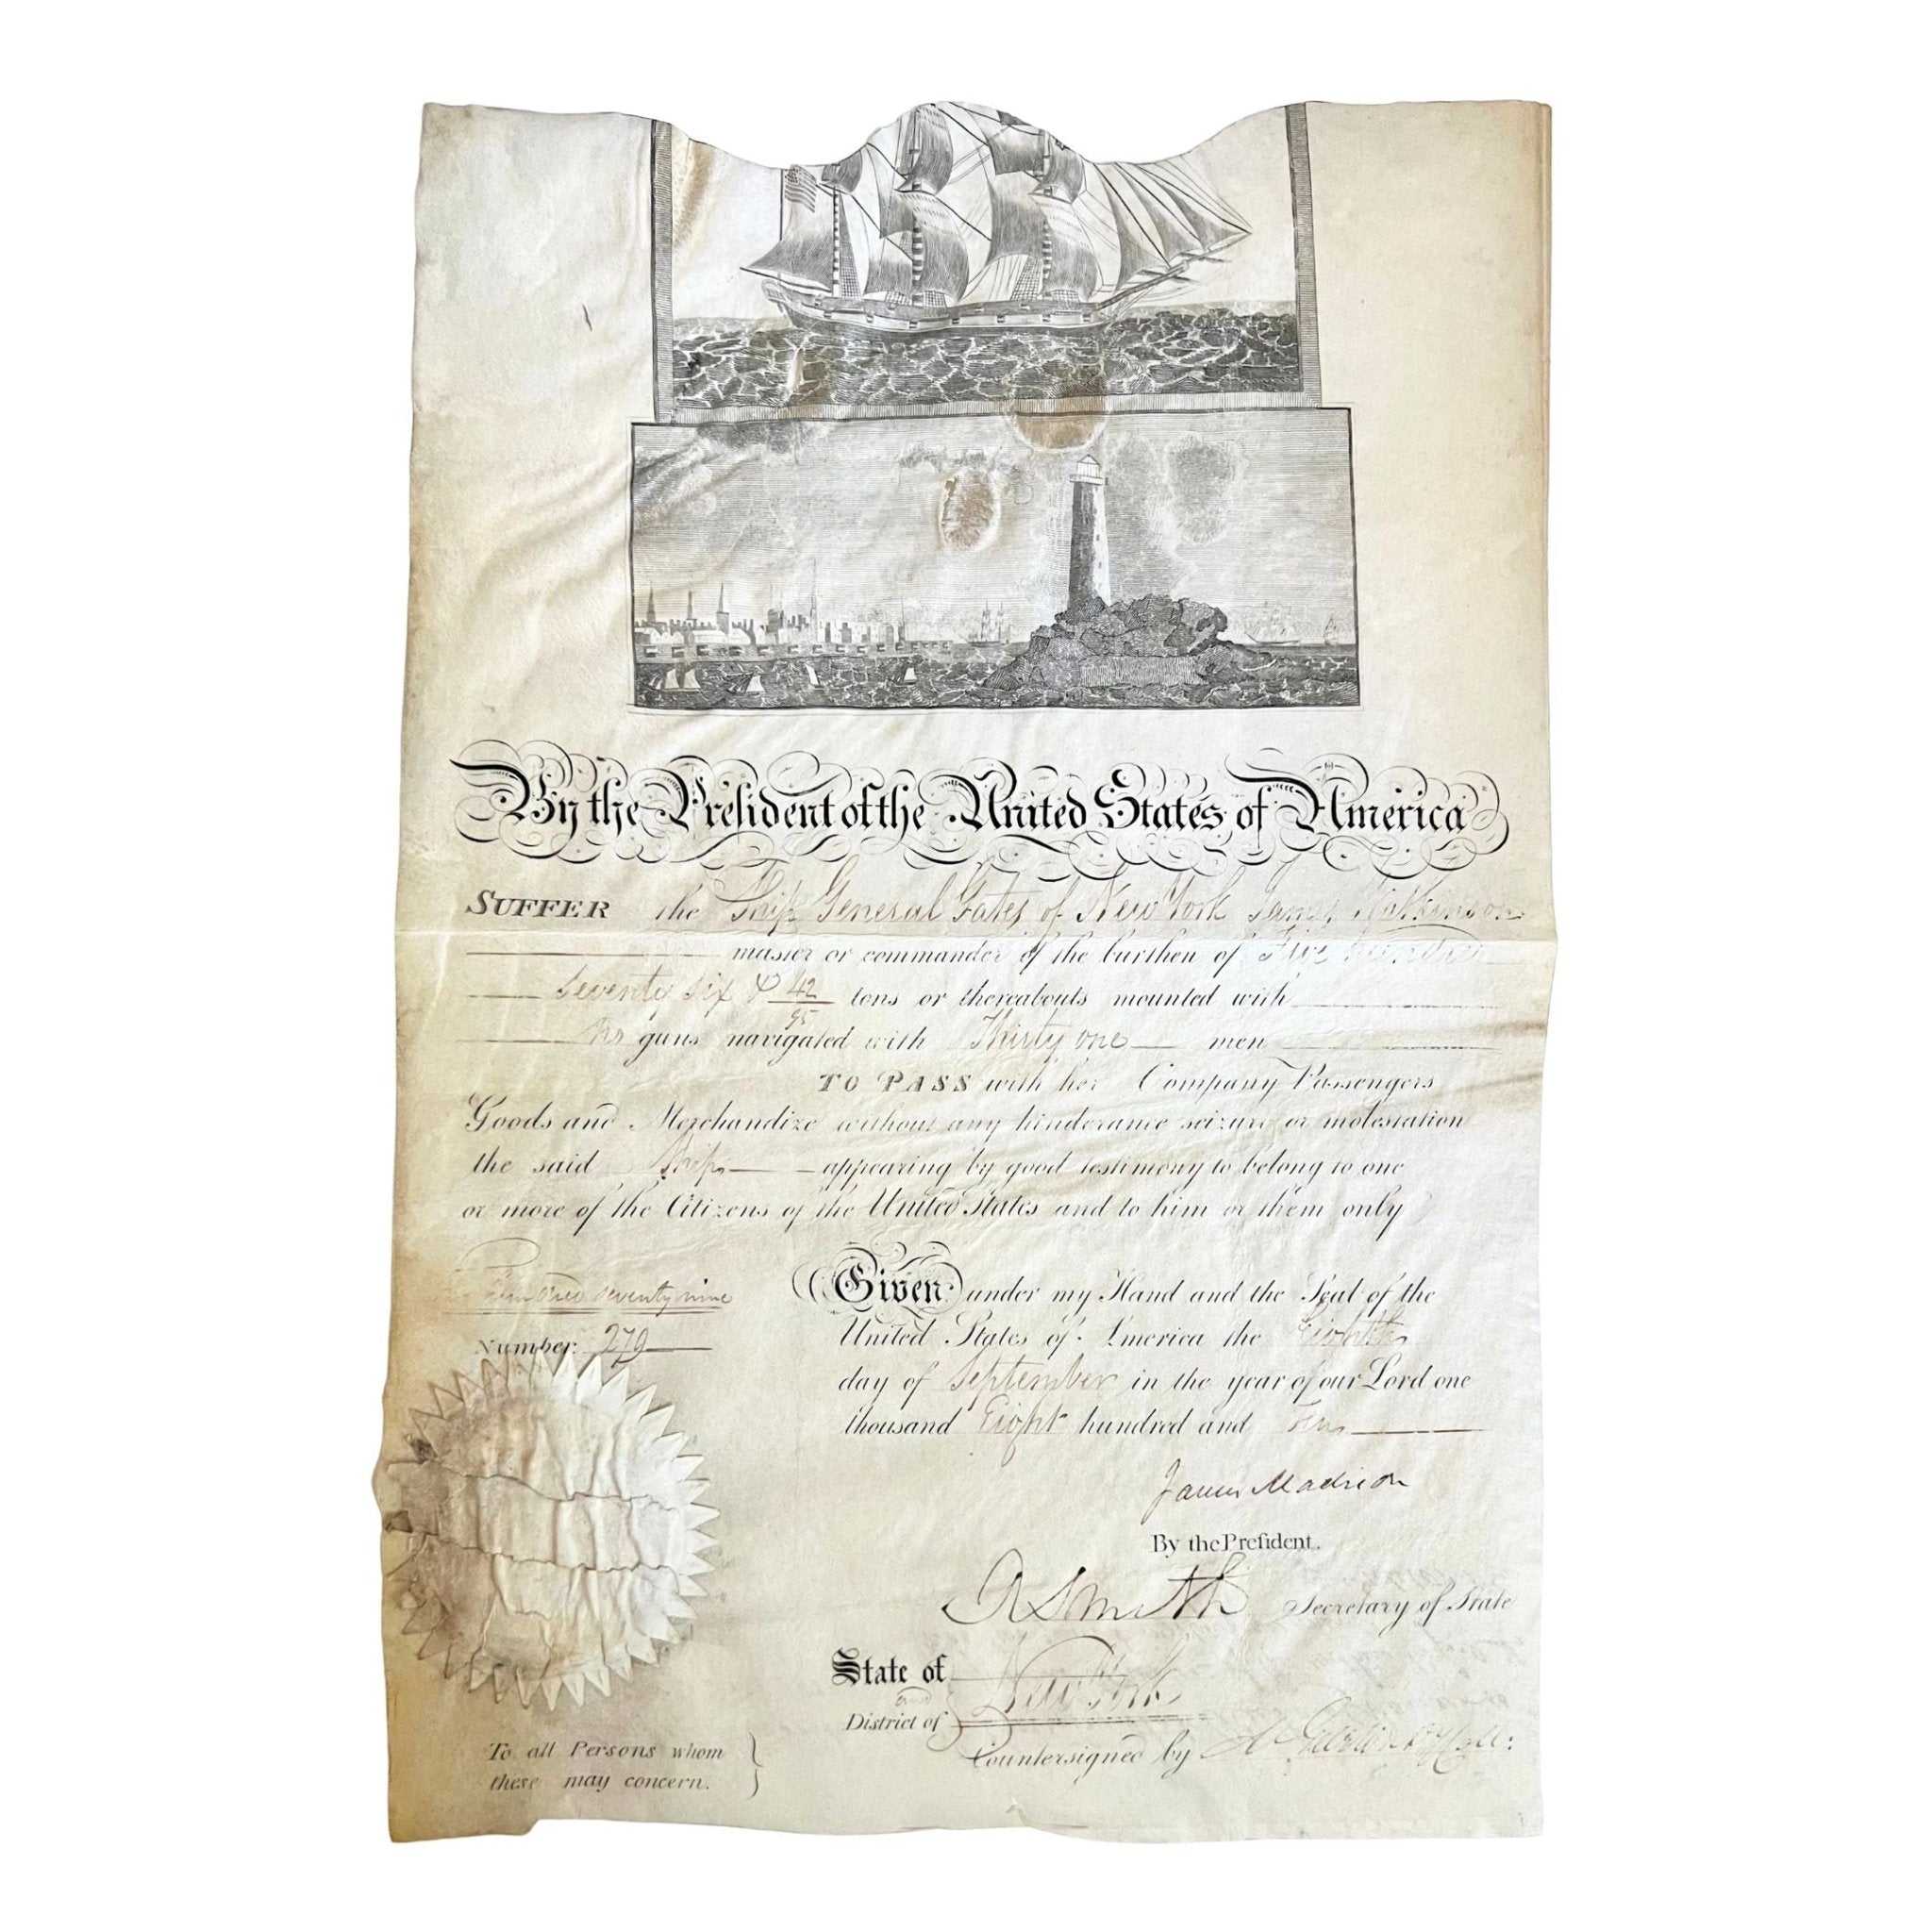 By the President of the United States of America
SUFFER the Ship General Gates of New York
master or commander of the burthen of Five hundred
Seventy six & 42/95 tons or thereabouts mounted with
no guns navigated with Thirty one men
TO PASS with her Company Passengers
Goods and Merchandize without any hinderance seizure or molestation
the said Ship appearing by good testimony to belong to one
or more of the Citizens of the United States and to him or them only
hundred seventy nine
Number 279
Given under my Hand and the Seal of the
United States of America the Eighth
day of September in the year of our Lord one
thousand Eight hundred and Ten
James Madison
By the President.
R Smith Secretary of State
State of New York
and
District of
Countersigned by
To all Persons whom
these may concern.